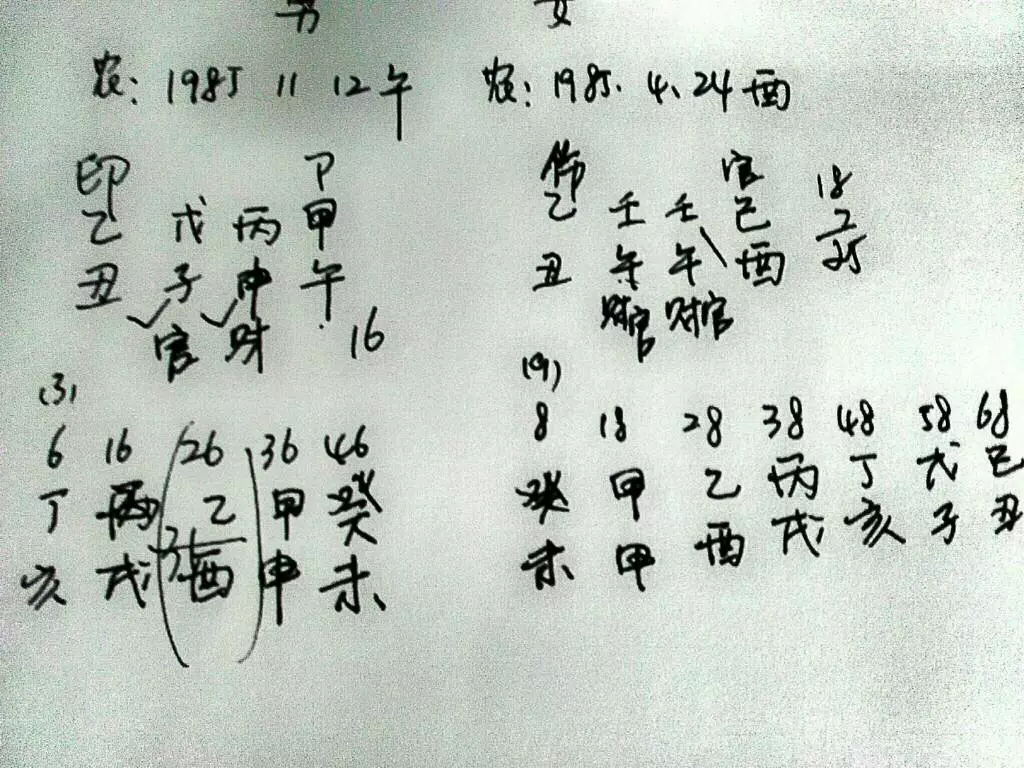 男 女
农: 1985 11 12 午
农: 1985. 4. 24 酉
印 卩
乙 戊 丙 甲
丑 子 申 午
官 财 16
(3)
6 16 26 36 46
丁 丙 乙 甲 癸
31
亥 戌 酉 申 未
伤 官 18
乙 壬 壬 己 7
丑 午 午 酉 25
财官 财官
(9)
8 18 28 38 48 58 68
癸 甲 乙 丙 丁 戊 己
未 申 酉 戌 亥 子 丑